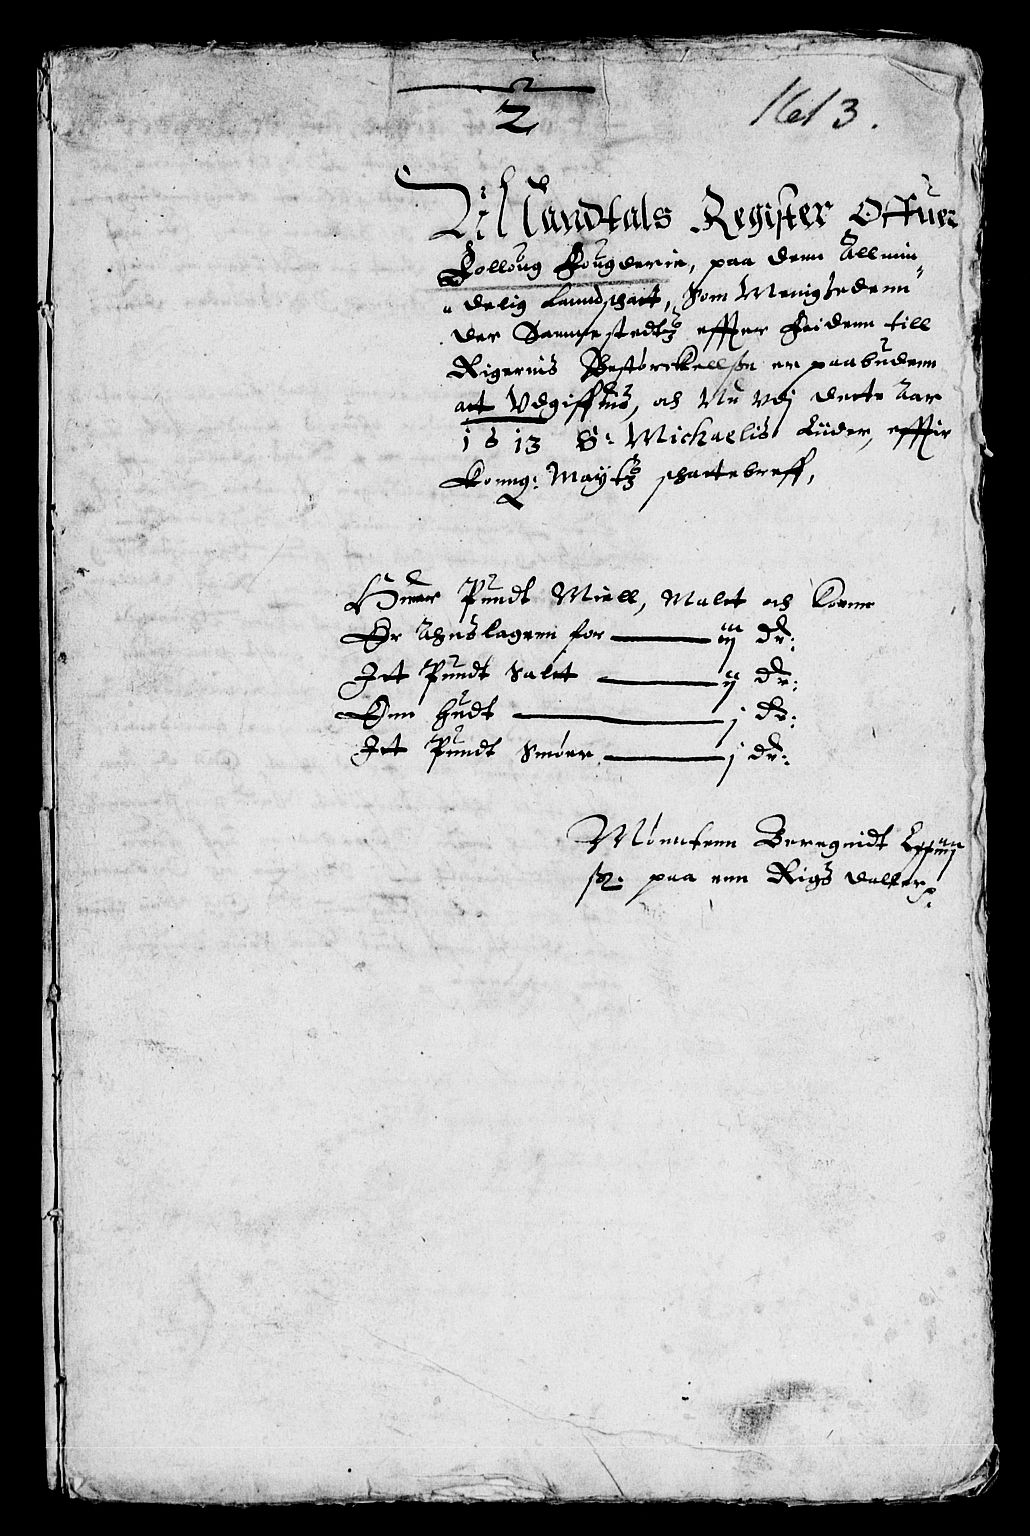 2
1613.
Mandtals Register Offuer
Folloug Fougderie, paa denn Allmin
delig Landschatt, som Menighedenn
der Sammestedtz effter Feidenn till
Rigernis Bestørckellße er paabudenn
att Udgiffuis, och Nu vdj dette Aar
1613 S: Michaelis tiider, effter
Konng: Maytz schattebreff,
Huer Pundt Miell, Malet och Korn
Er Ahnslagenn for iij dr:
Jtt Pundt Salet ij dr:
Enn hudt j dr:
Jtt Pundt Smøer j dr:
Mønntenn Beregnidt Lxxiiij
sz. paa enn Rigs daller.